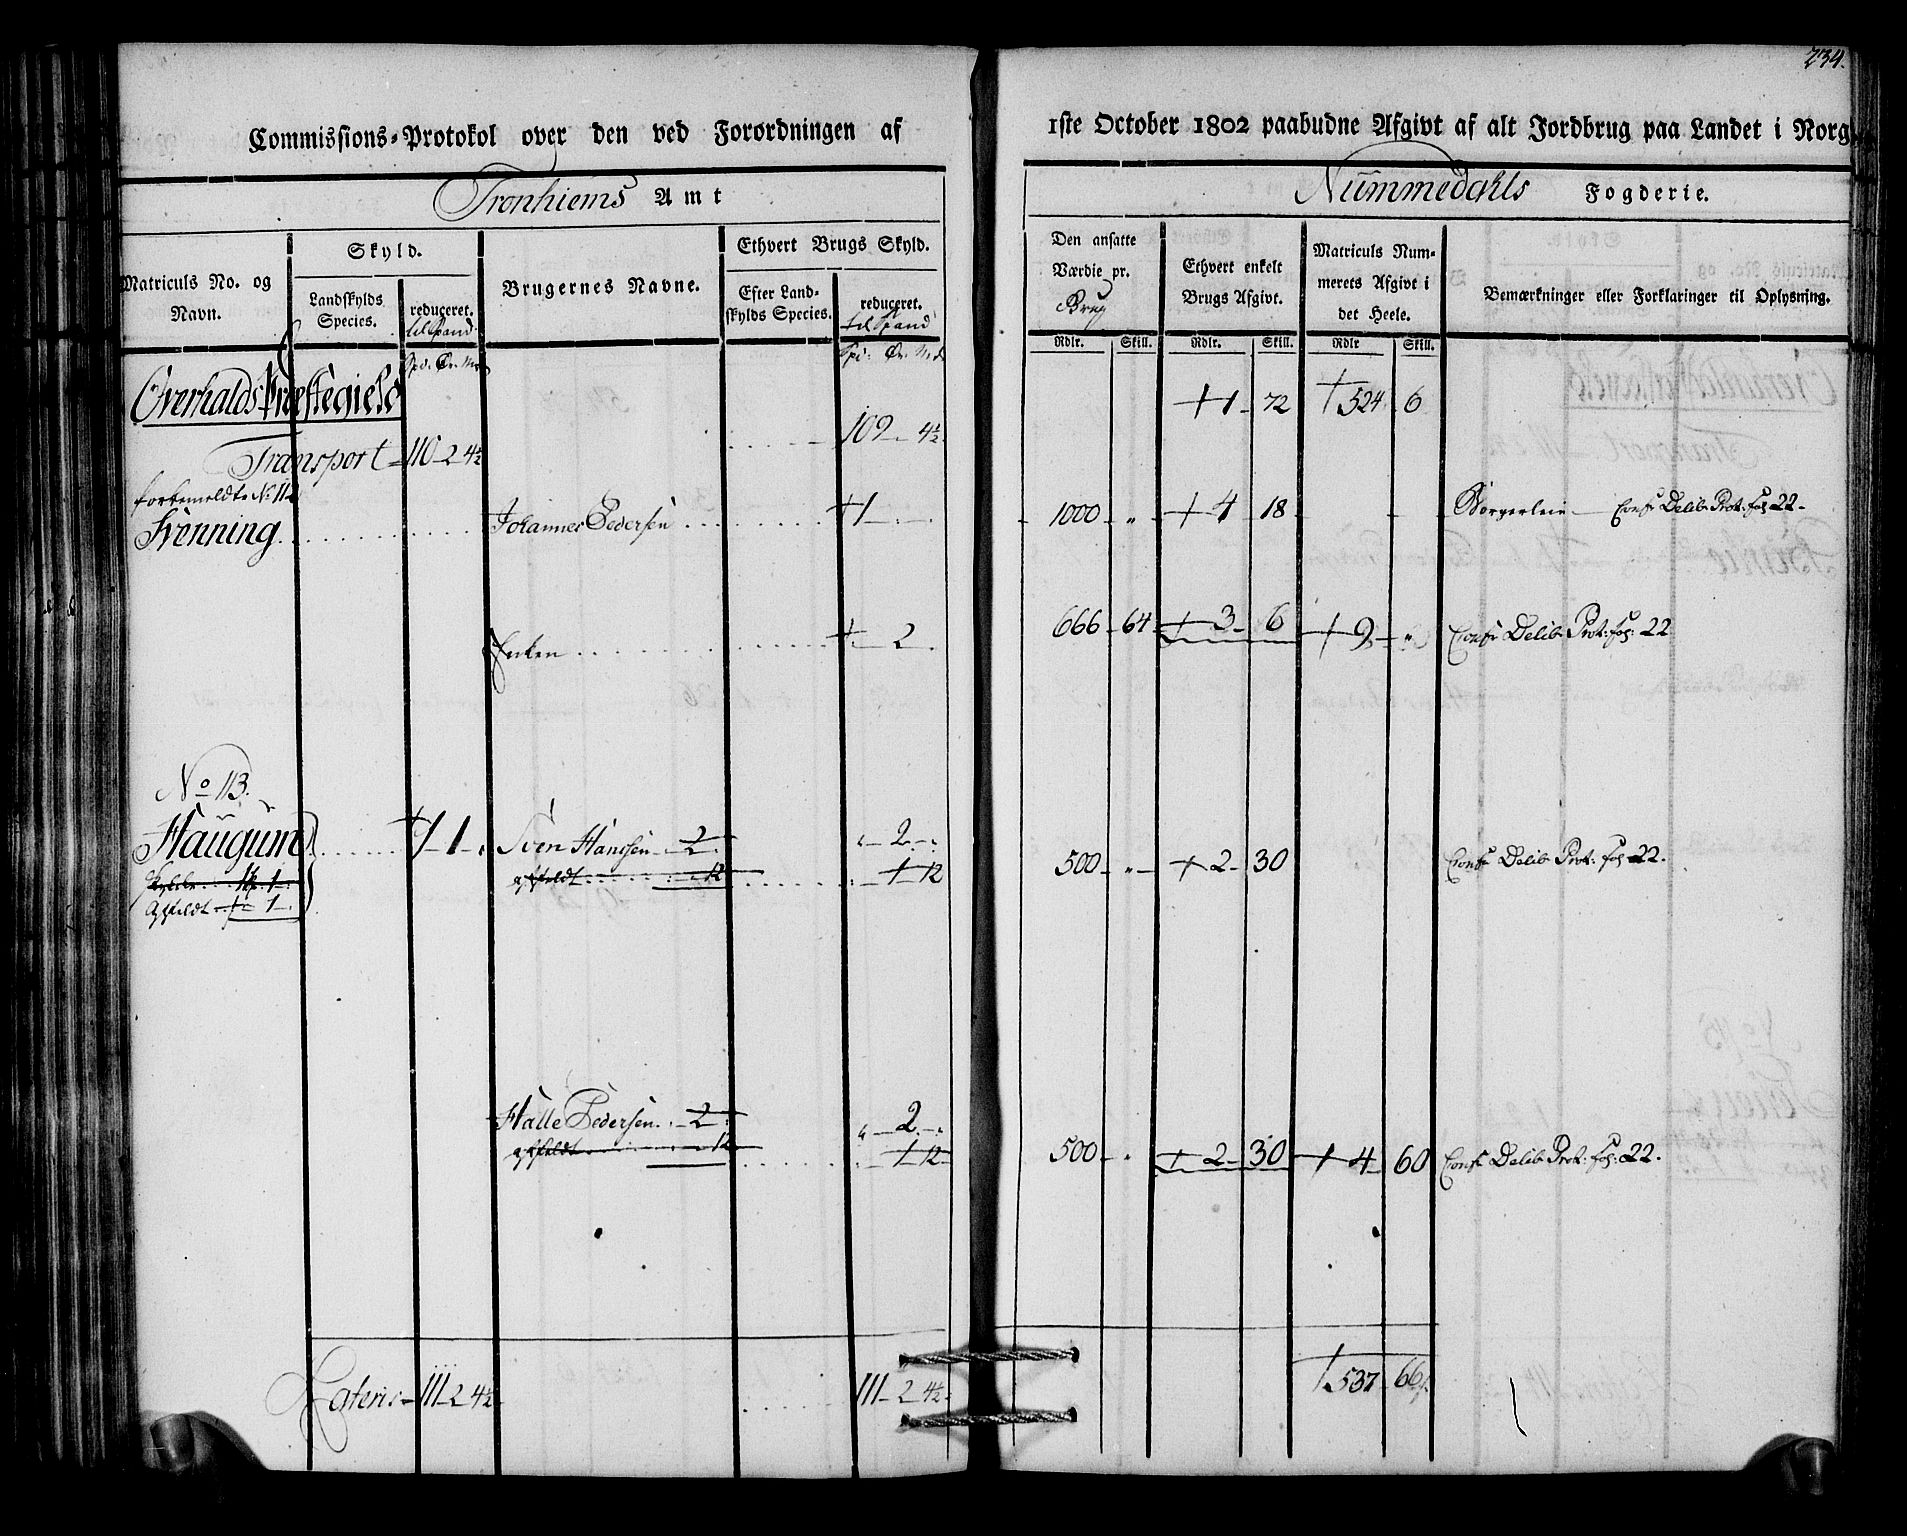 234.
Commissions-Protokol over den ved Forordningen af 1ste October 1802 paabudne Afgivt af alt Jordbrug paa Landet i Norg
Tronhiems Amt
Nummedahls Fogderie.
Matriculs No. og Navn.
Skyld.
Landskylds Species.
reduceret. til Spand
Brugernes Navne.
Ethvert Brugs Skyld.
Efter Landskylds Species.
reduceret. til Spand
Den ansatte Værdie pr. Brug
Ethvert enkelt Brugs Afgivt.
Matriculs Nummerets Afgivt i det Heele.
Bemærkninger eller Forklaringer til Oplysning.
Rdlr. Skill. Rdlr. Skill. Rdlr Skill.
Overhalds Præstegield
1 - 72 524 6
Transport 110 - 2 4½ 109 - 4½
forbemeldte No 112
Henning Johannes Pedersen 1 1000 - " 4 18 Borgerleie Conf Delib Prot: fol 22.
Enken 2 666 - 64 3 - 6 9 - " Conf Delib Prot: fol: 22
No 113.
Haugum 1 - 1 Sven Hansen 2 " - 2 - " 500 - " 2 - 30 Conf Delib Prot: fol 22.
1 12
Halle Pedersen 2 " - 2 - " 500 - " 2 - 30 4 60 Conf Delib Prot: fol: 22.
1 12
Lateris 111 - 2 4½ 111 - 2 4½ 537 66